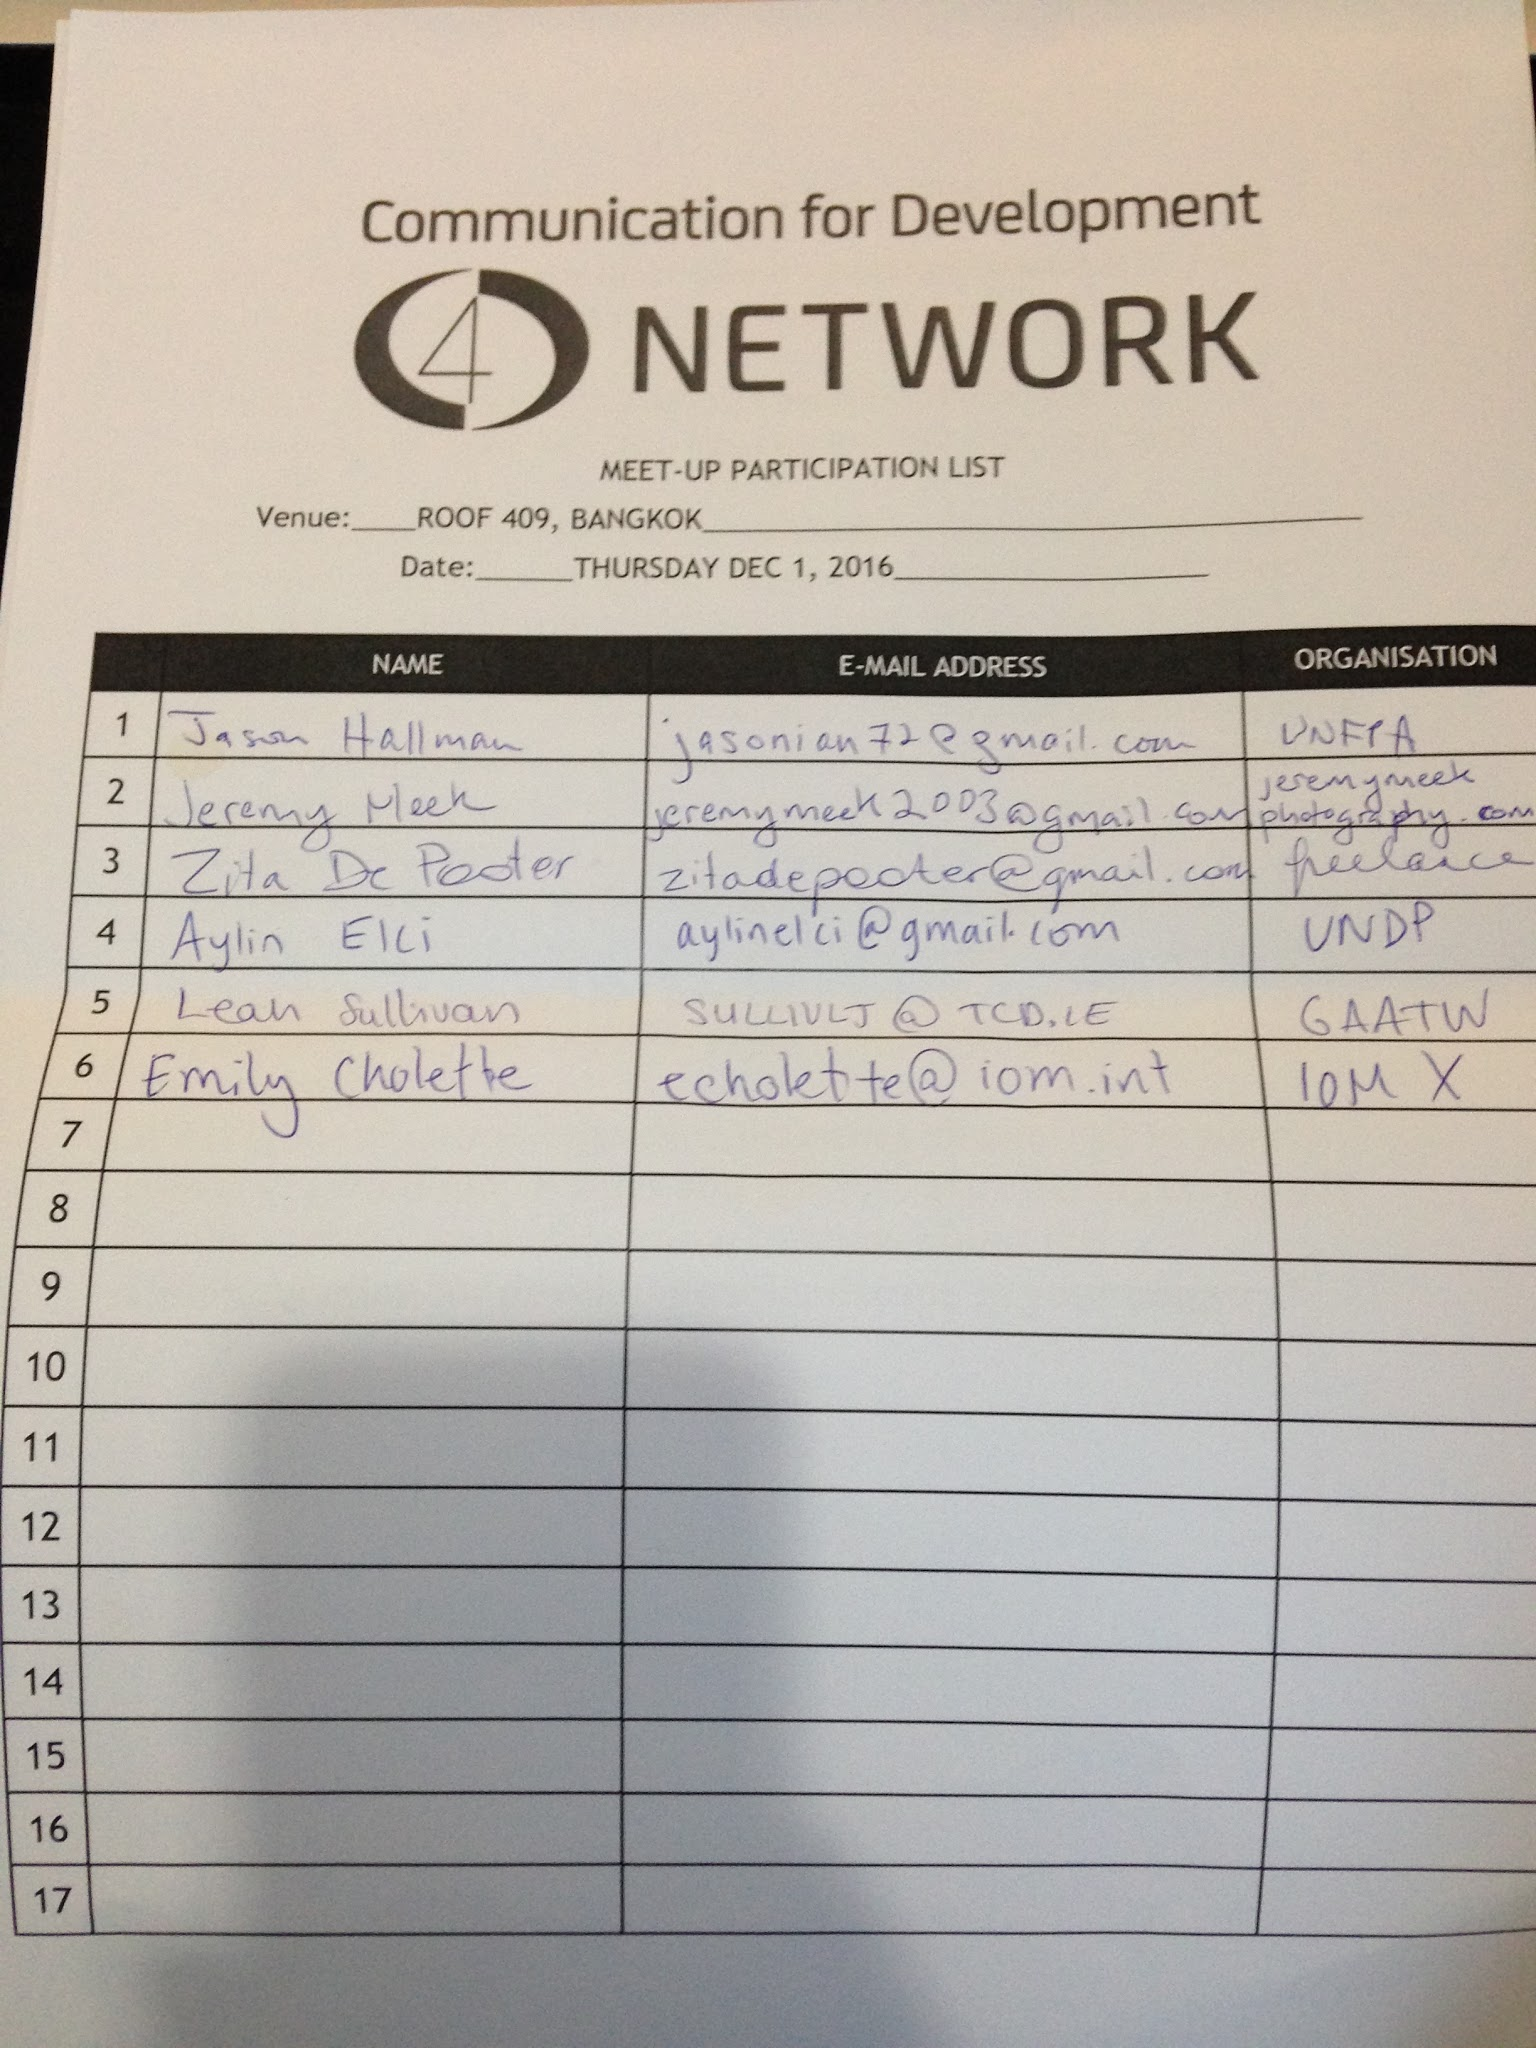 Communication for Development
4 NETWORK
MEET-UP PARTICIPATION LIST
Venue:____ROOF 409, BANGKOK____
Date:______THURSDAY DEC 1, 2016____
NAME E-MAIL ADDRESS ORGANISATION
1 Jason Hallman jasonian72@gmail.com UNFPA
2 Jeremy Meek jeremymeek2003@gmail.com jeremymeek
photography.com
3 Zita De Pooter zitadepooter@gmail.com freelance
4 Aylin Elci aylinelci@gmail.com UNDP
5 Leah Sullivan SULLIVLJ@TCD.IE GAATW
6 Emily Cholette echolette@iom.int IOM X
7
8
9
10
11
12
13
14
15
16
17